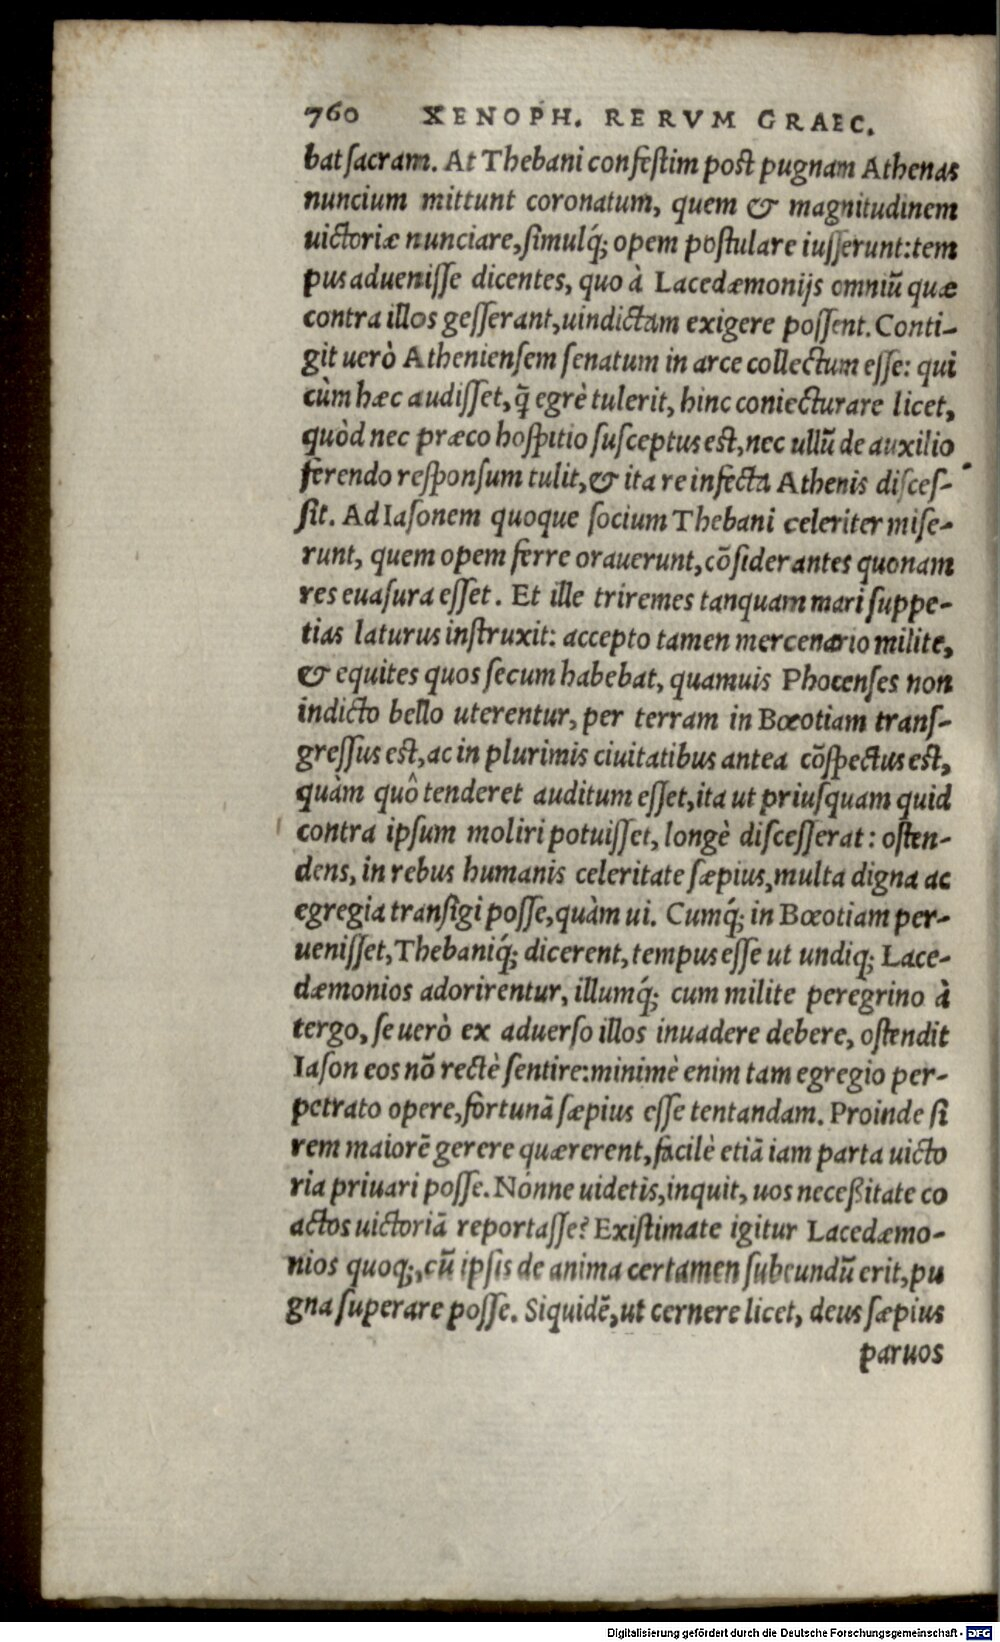 760 XENOPH. RERVM GRAEC.
bat sacram. At Thebani confestim post pugnam Athenas
nuncium mittunt coronatum, quem & magnitudinem
uictoriæ nunciare, simulq́; opem postulare iusserunt: tem
pus aduenisse dicentes, quo à Lacedæmonijs omniū quæ
contra illos gesserant, uindictam exigere possent. Conti-
git uerò Atheniensem senatum in arce collectum esse: qui
cùm hæc audisset, q̄ egrè tulerit, hinc coniecturare licet,
quòd nec præco hospitio susceptus est, nec ullū de auxilio
ferendo responsum tulit, & ita re infecta Athenis disces-
sit. Ad Iasonem quoque socium Thebani celeriter mise-
runt, quem opem ferre orauerunt, cōsiderantes quonam
res euasura esset. Et ille triremes tanquam mari suppe-
tias laturus instruxit: accepto tamen mercenario milite,
& equites quos secum habebat, quamuis Phocenses non
indicto bello uterentur, per terram in Bœotiam trans-
gressus est, ac in plurimis ciuitatibus antea cōspectus est,
quàm quô tenderet auditum esset, ita ut priusquam quid
contra ipsum moliri potuisset, longè discesserat: osten-
dens, in rebus humanis celeritate sæpius, multa digna ac
egregia transigi posse, quàm ui. Cumq́; in Bœotiam per-
uenisset, Thebaniq́; dicerent, tempus esse ut undiq; Lace-
dæmonios adorirentur, illumq́; cum milite peregrino à
tergo, se uerò ex aduerso illos inuadere debere, ostendit
Iason eos nō rectè sentire: minimè enim tam egregio per-
petrato opere, fortunā sæpius esse tentandam. Proinde si
rem maiorē gerere quærerent, facilè etiā iam parta uicto
ria priuari posse. Nónne uidetis, inquit, uos neceßitate co
actos uictoriā reportasse? Existimate igitur Lacedæmo-
nios quoq;, cū ipsis de anima certamen subeundū erit, pu
gna superare posse. Siquidē, ut cernere licet, deus sæpius
paruos
Digitalisierung gefördert durch die Deutsche Forschungsgemeinschaft - DFG